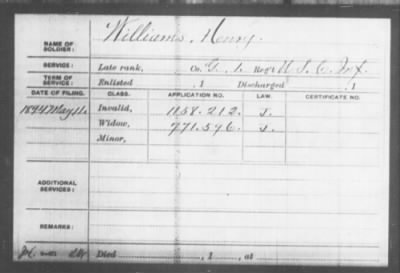 Williams, Henry.
NAME OF SOLDIER:
SERVICE: Late rank, Co. G, 1. Reg't U.S.C. Inf.
TERM OF SERVICE: Enlisted , 1 Discharged , 1
DATE OF FILING. CLASS. APPLICATION NO. LAW. CERTIFICATE NO.
1894 May 11. Invalid, 1158.212. J.
Widow, 771.596. J.
Minor,
ADDITIONAL SERVICES:
REMARKS:
Died , 1 , at